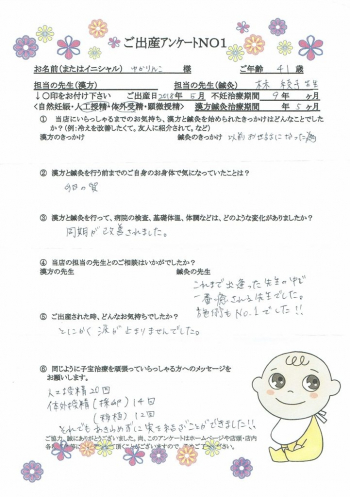 ご出産アンケートNO1
お名前(またはイニシャル) やがりんこ 様 ご年齢 41 歳
担当の先生(漢方) 担当の先生(鍼灸) 林 先生
↓○印をお付け下さい ご出産日 2018年 5月 不妊治療期間 9年 ヶ月
<自然妊娠・人工授精・体外受精・顕微授精> 漢方鍼灸治療期間 年 5ヶ月
① 当店にいらっしゃるまでのお気持ち、漢方と鍼灸を始められたきっかけはどんなことでしたか?(例:冷えを改善したくて。友人に紹介されて。など)
漢方のきっかけ 鍼灸のきっかけ 以前お世話になった為
② 漢方と鍼灸を行う前までのご自身のお身体で気になっていたことは?
卵の質
③ 漢方と鍼灸を行って、病院の検査、基礎体温、体調などは、どのような変化がありましたか?
周期が改善されました。
④ 当店の担当の先生とのご相談はいかがでしたか?
漢方の先生 鍼灸の先生
これまで出逢った先生の中で
一番癒される先生でした。
施術もNo.1でした!!
⑤ ご出産された時、どんなお気持ちでしたか?
とにかく涙が止まりませんでした。
⑥ 同じように子宝治療を頑張っていらっしゃる方へのメッセージをお願いします。
人工授精20回
体外授精(採卵)14回
(移植)12回
それでもあきらめずに実を結ぶことができました!!
ご協力、誠にありがとうございました。尚、このアンケートはホームページや店頭・店内